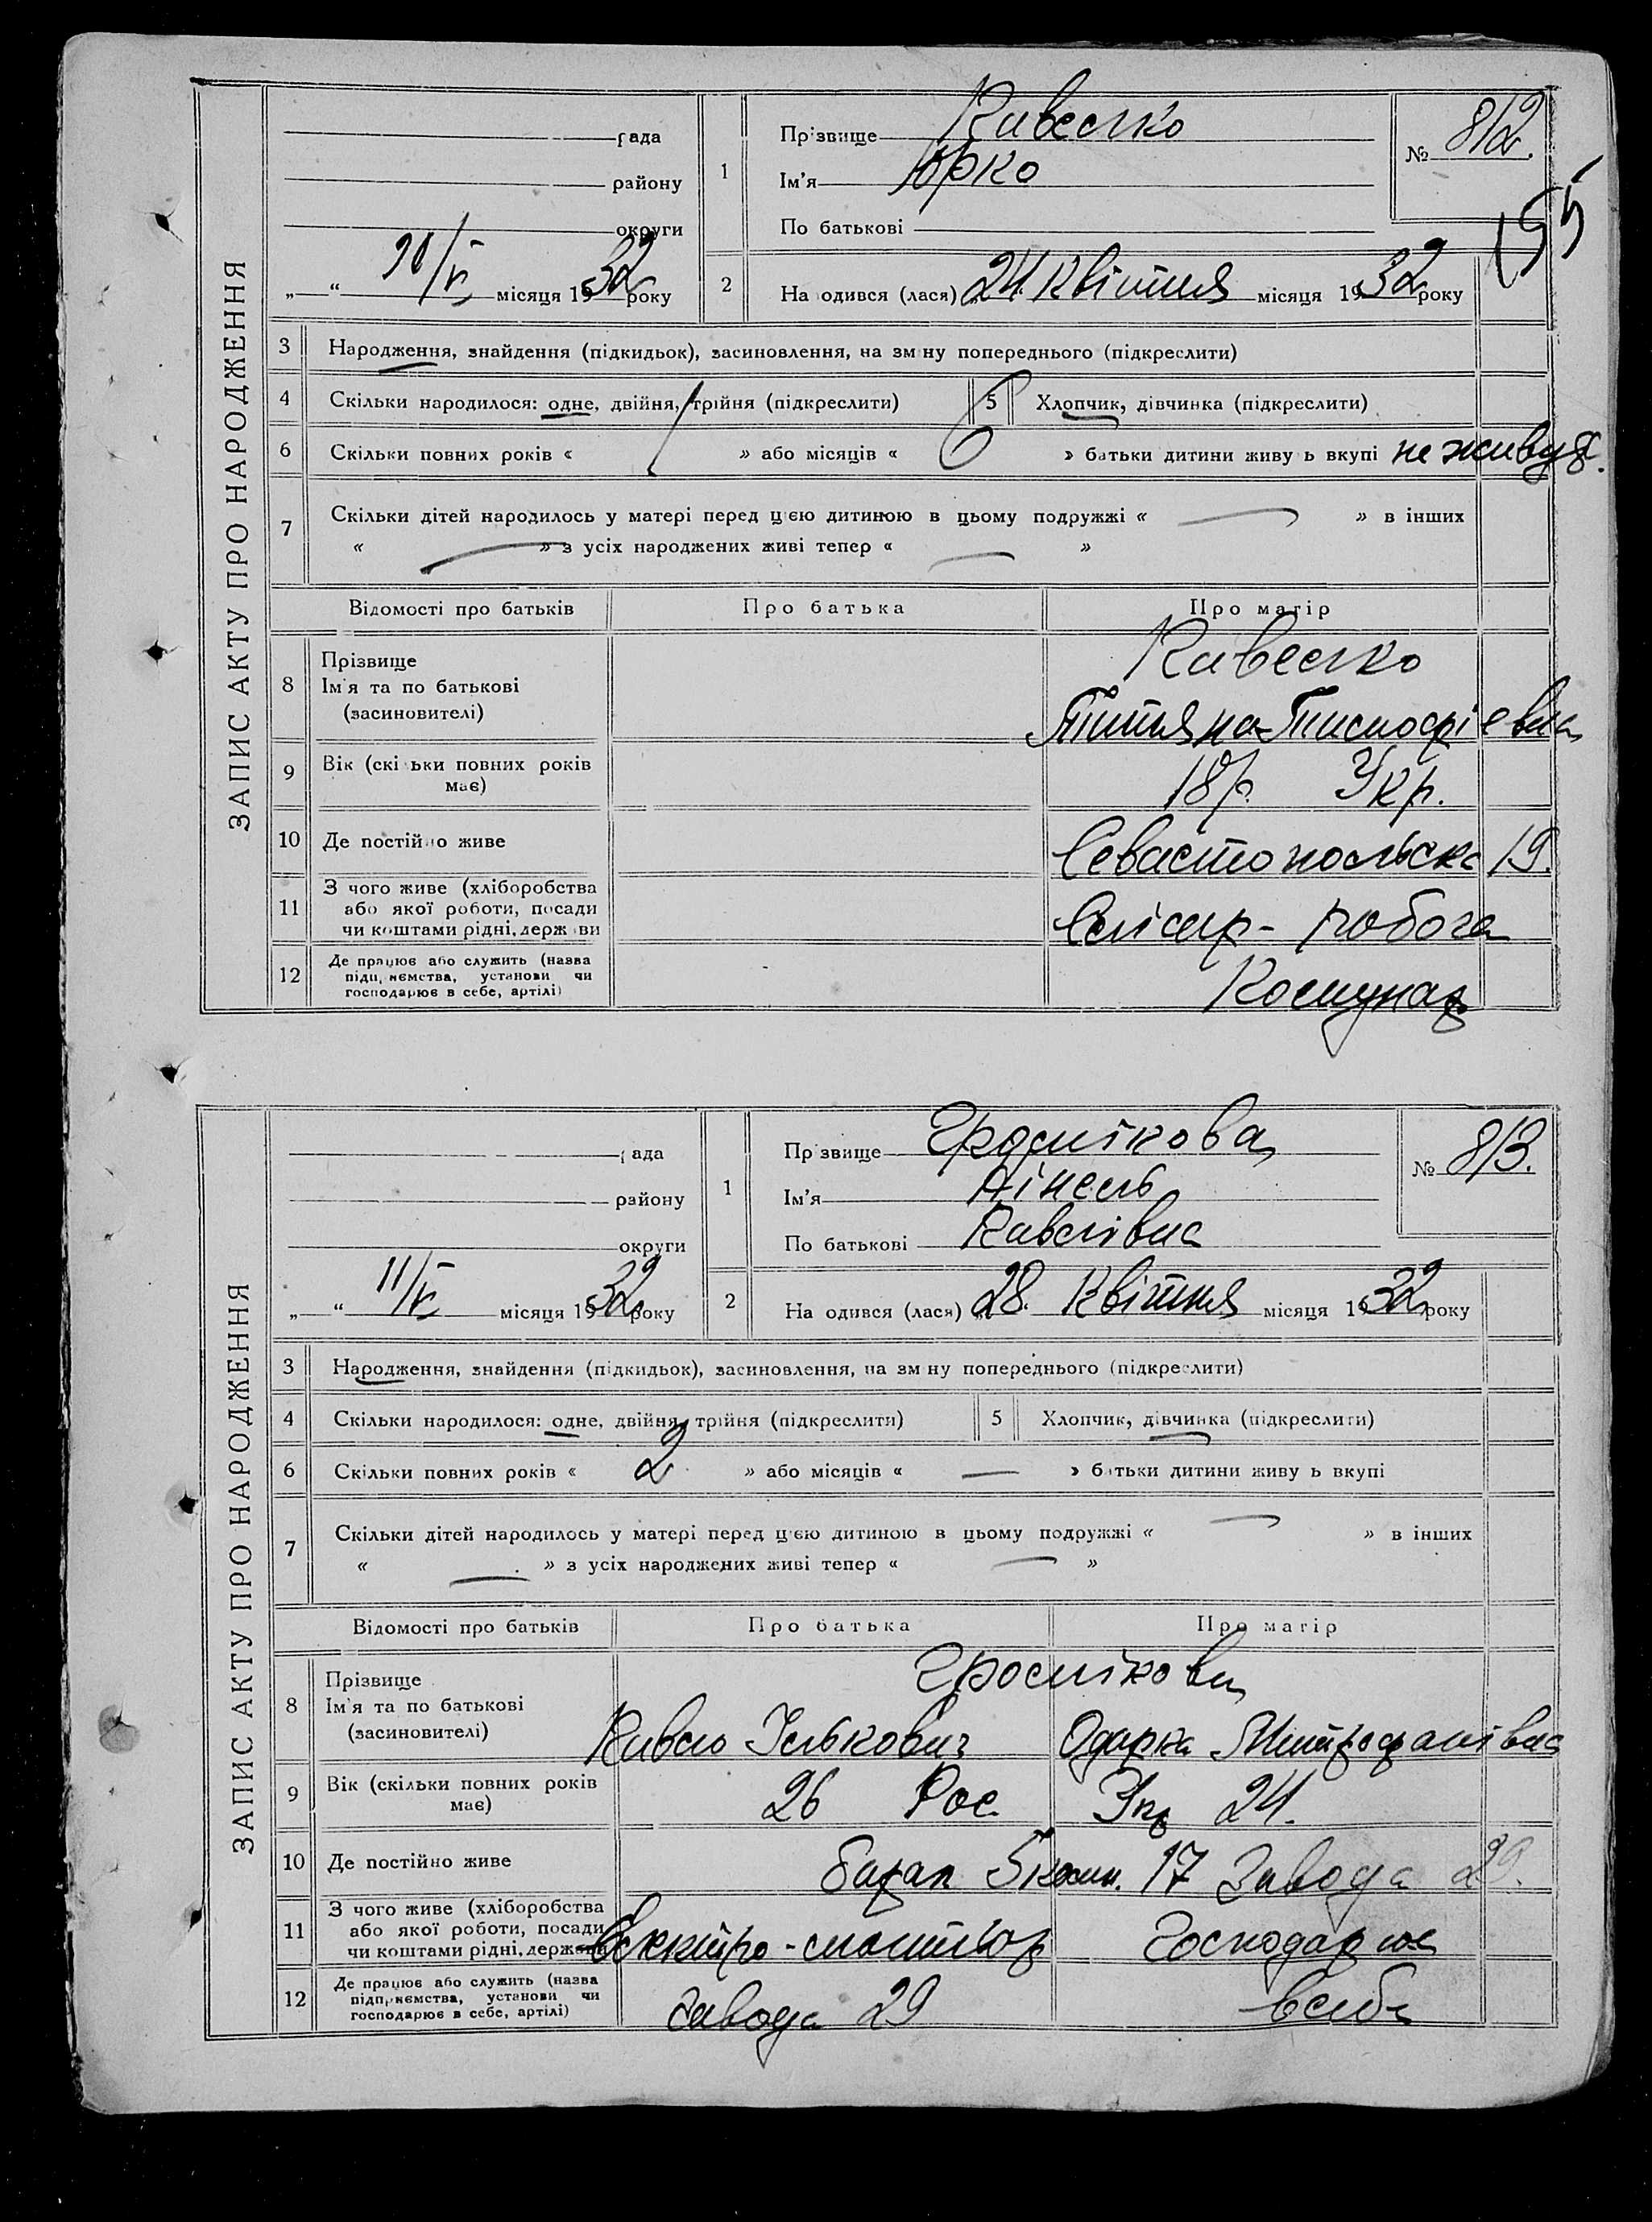 ЗАПИС АКТУ ПРО НАРОДЖЕННЯ
рада
району
округи
„—“ 10/V місяця 1932 року
1
Пр звище Кивесько
Ім'я Юрко
По батькові
№ 812.
155
2
На одився (лася) „24. квітня місяця 1932 року
3 Народження, знайдення (підкидьок), засиновлення, на зм ну попереднього (підкреслити)
4 Скільки народилося: одне, двійня, трійня (підкреслити)
5 Хлопчик, дівчинка (підкреслити)
6 Скільки повних років « » або місяців « 6 » батьки дитини живу ь вкупі не живуть.
7 Скільки дітей народилось у матері перед цією дитиною в цьому подружжі « — » в інших
« — » з усіх народжених живі тепер « — »
Відомості про батьків Про батька Про матір
8 Прізвище
Ім'я та по батькові
(засиновителі)
Кивесько
Титяна
9 Вік (скі ьки повних років
має)
18 р. Укр.
10 Де постійно живе Севастопольська 19.
11 З чого живе (хліборобства
або якої роботи, посади
чи коштами рідні, держ ви
Слісар - робоча
12 Де працює або служить (назва
підп, иємства, установи чи
господарює в себе, артілі)
Комунар
ЗАПИС АКТУ ПРО НАРОДЖЕННЯ
рада
району
округи
„—“ 11/V місяця 1932 року
1
Пр звище
Ім'я Нінель
По батькові Павлівна
№ 813.
2
На одився (лася) „28. квітня місяця 1932 року
3 Народження, знайдення (підкидьок), засиновлення, на зм ну попереднього (підкреслити)
4 Скільки народилося: одне, двійня, трійня (підкреслити)
5 Хлопчик, дівчинка (підкреслити)
6 Скільки повних років « 2 » або місяців « — » батьки дитини живу ь вкупі
7 Скільки дітей народилось у матері перед цією дитиною в цьому подружжі « — » в інших
« — » з усіх народжених живі тепер « — »
Відомості про батьків Про батька Про матір
8 Прізвище
Ім'я та по батькові
(засиновителі)
Павло Ількович Одарка Митрофанівна
9 Вік (скільки повних років
має)
26 Рос. Укр 24.
10 Де постійно живе Барак 5 комн. 17 Завода 29.
11 З чого живе (хліборобства
або якої роботи, посади
чи коштами рідні, держави
Електро-монтьор Господарює
12 Де працює або служить (назва
підприємства, установи чи
господарює в себе, артілі)
завода 29 в себе